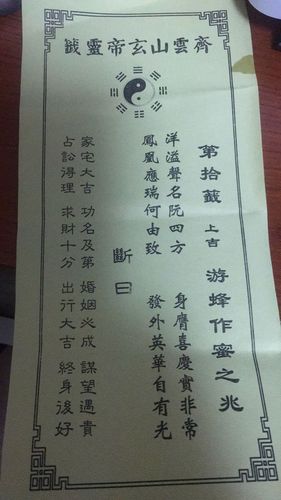 齊雲山玄帝靈籤
第拾籤 上吉 游蜂作蜜之兆
洋溢聲名阮四方 身膺喜慶實非常
鳳凰應瑞何由致 發外英華自有光
斷曰
家宅大吉 功名及第 婚姻必成 謀望遇貴
占訟得理 求財十分 出行大吉 終身後好